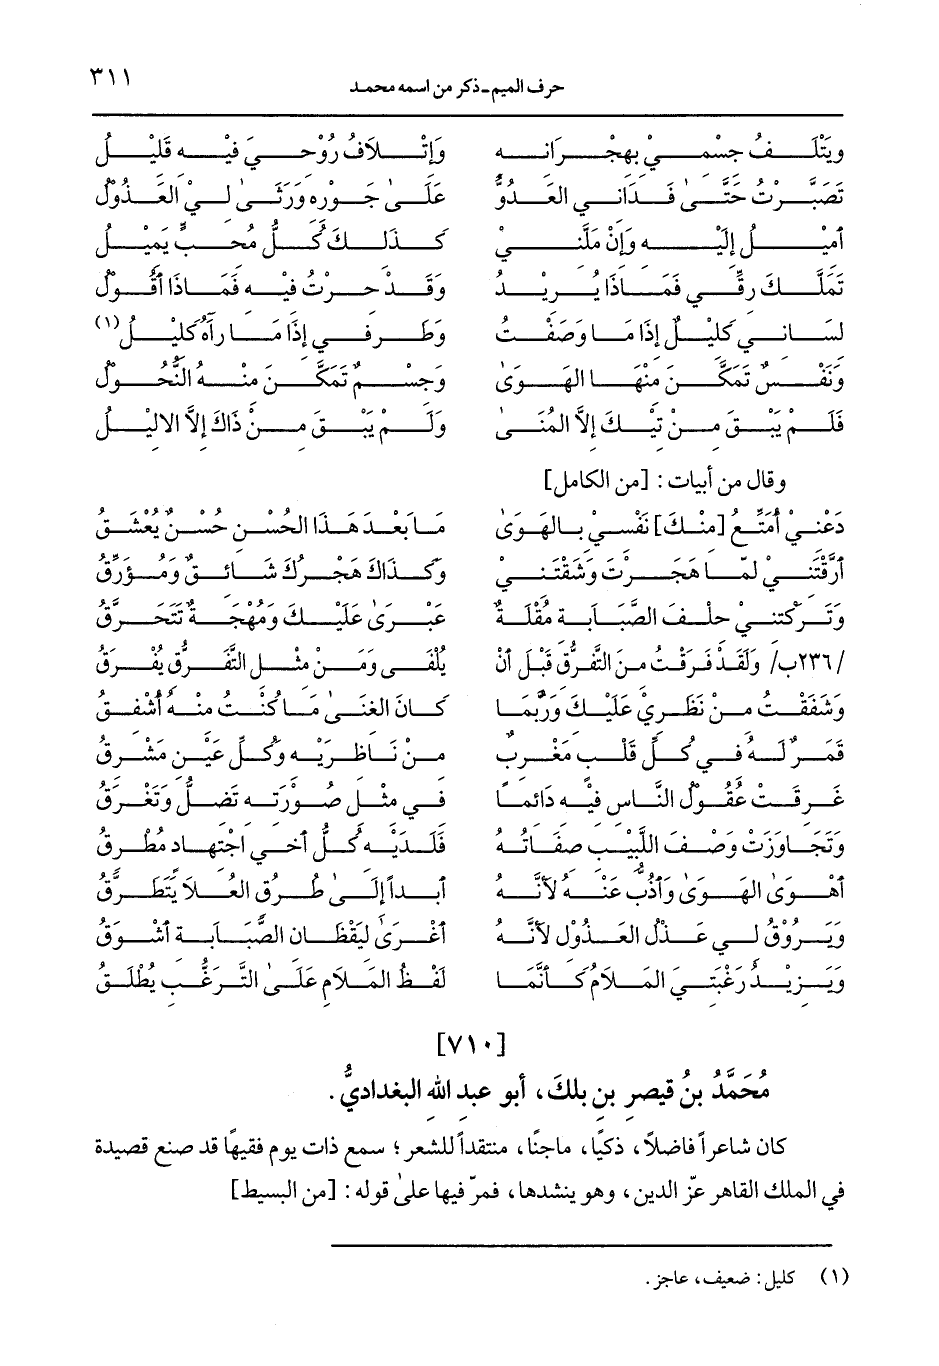 حرف الميم-ذكر من اسمه محمد ٣١١
ويَتْلَفُ جسْمِيْ بهِجْرانِه وَإتْلافُ رُوْحِيَ فيْهِ قليْلُ
تَصَبَّرْتُ حَتَّى فَدَانِي العَدُوُّ عَلَىٰ جَوْرِهِ وَرَثَىٰ لِيْ العَذُوْلُ
أميْلُ إليْهِ وَإنْ مَلَّنِيْ كَذلِكَ كُلُّ مُحِبٍّ يَميْلُ
تَمَلَّكَ رقِّي فَمَاذَا يُرِيْدُ وَقَدْ حِرْتُ فيْهِ فَمَاذَا أقُوْلُ
لسَانِي كَليْلٌ إذَا مَا وَصَفْتُ وَطَرفِي إذَا مَا رآهُ كَليْلُ (١)
وَنَفْسٌ تَمَكَّنَ مِنْهَا الهَوَىٰ وَجسْمٌ تَمَكَّنَ منْهُ النُّحُوْلُ
فَلَمْ يَبْقَ مِنْ تِيْكَ إلاَّ المُنَىٰ وَلَمْ يَبْقَ مِنْ ذَاكَ إلاَّ الاليْلُ
وقال من أبيات: [من الكامل]
دَعْنِيْ أُمَتِّعُ [مِنْكَ] نَفْسِيْ بالهَوَىٰ مَا بَعْدَ هَذَا الحُسْنِ حُسْنٌ يُعْشَقُ
أرَّقْتَنِيْ لمَّا هَجَرْتَ وَشُقْتَنِيْ وَكَذَاكَ هَجْرُكَ شَائِقٌ وَمُؤَرِّقُ
وَتَرَكْتَنِيْ حِلْفَ الصَّبَابَةِ مُقْلَةٌ عَبْرَىٰ عَلَيْكَ وَمُهْجَةٌ تَتَحَرَّقُ
/٢٣٦ب/ وَلَقَدْ فَرِقْتُ مِنَ التَّفَرُّقِ قَبْلَ أنْ يُلْقَى وَمَنْ مثْلِ التَّفَرُّقِ يُفْرَقُ
وَشَفَقْتُ مِنْ نَظَرِيْ عَلَيْكَ وَرُبَّمَا كَانَ الغَنَىٰ مَا كُنْتُ مِنْهُ أُشْفِقُ
قَمَرٌ لَهُ فِي كُلِّ قَلْبٍ مَغْرِبٌ مِنْ نَاظِرَيْهِ وَكُلِّ عَيْنٍ مَشْرِقُ
غَرِقَتْ عُقُوْلُ النَّاسِ فيْهِ دَائمًا فِي مثْلِ صُوْرَتِهِ تَضِلُّ وَتَغْرَقُ
وَتَجَاوَزَتْ وَصْفَ اللَّبيْبِ صفَاتُهُ فَلَدَيْهِ كُلُّ أخِي اجْتِهَادٍ مُطْرِقُ
أهْوَىٰ الهَوَىٰ وَأذُبُّ عَنْهُ لأنَّهُ أبَداً إلَىٰ طُرُقِ العُلاَ يَتَطَرَّقُ
وَيَرُوْقُ لِي عَذْلُ العَذُوْلِ لأنَّهُ أغْرَىٰ ليَقْظَانِ الصَّبَابَةِ أشْوَقُ
وَيَزيْدُ رَغْبَتِيَ المَلاَمُ كَأنَّمَا لَفْظُ المَلاَمِ عَلَىٰ التَّرَغُّبِ يُطْلَقُ
[٧١٠]
مُحَمَّدُ بنُ قيصرِ بنِ بلِكَ، أبو عبد الله البغداديُّ.
كان شاعراً فاضلاً، ذكيًّا، ماجنًا، منتقداً للشعر؛ سمع ذات يوم فقيهًا قد صنع قصيدة
في الملك القاهر عزّ الدين، وهو ينشدها، فمرّ فيها علىٰ قوله: [من البسيط]
(١) كليل: ضعيف، عاجز.